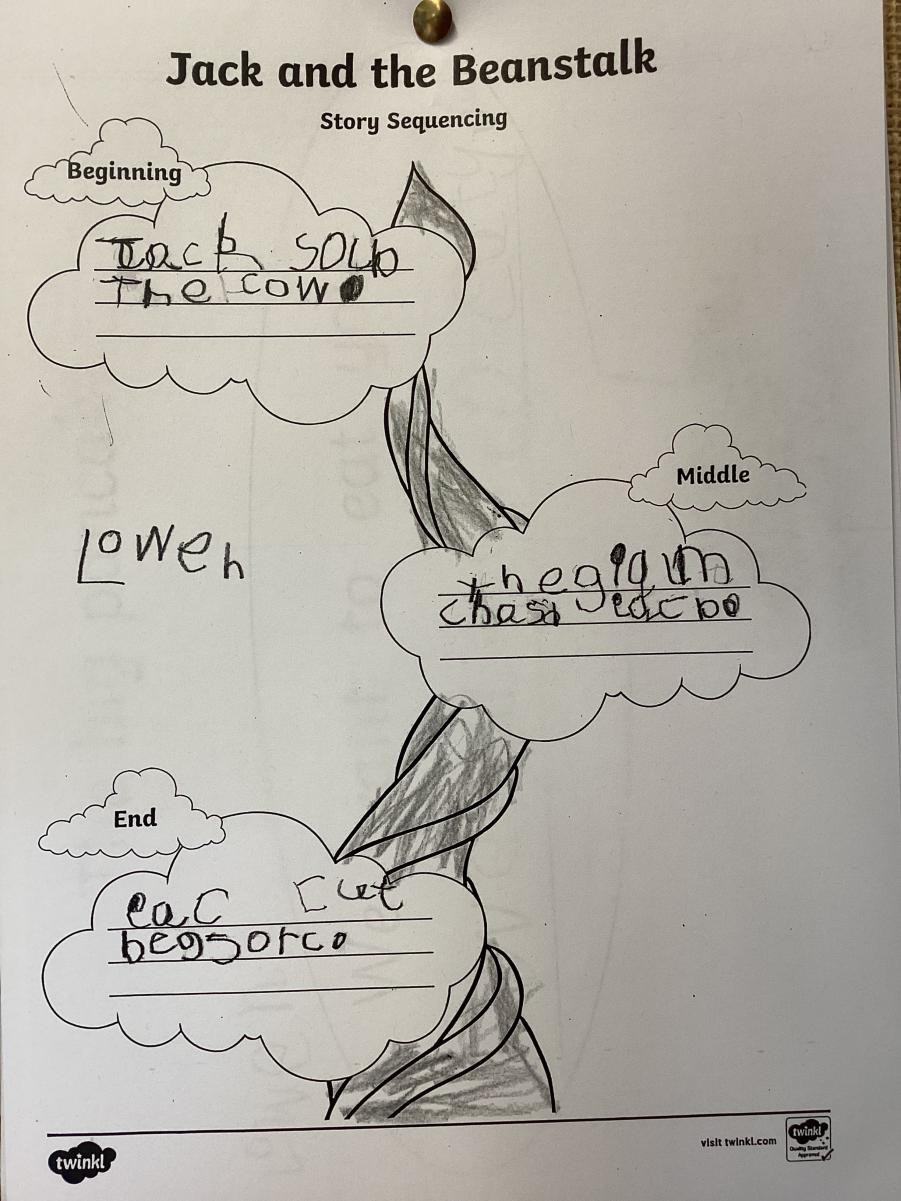 Jack and the Beanstalk
Story Sequencing
Beginning
Jack SOLD
The cow
Middle
thegigun
chasd
End
eac cut
Lowen
visit twinkl.com
twinkl
twinkl
Quality Standard
Approved